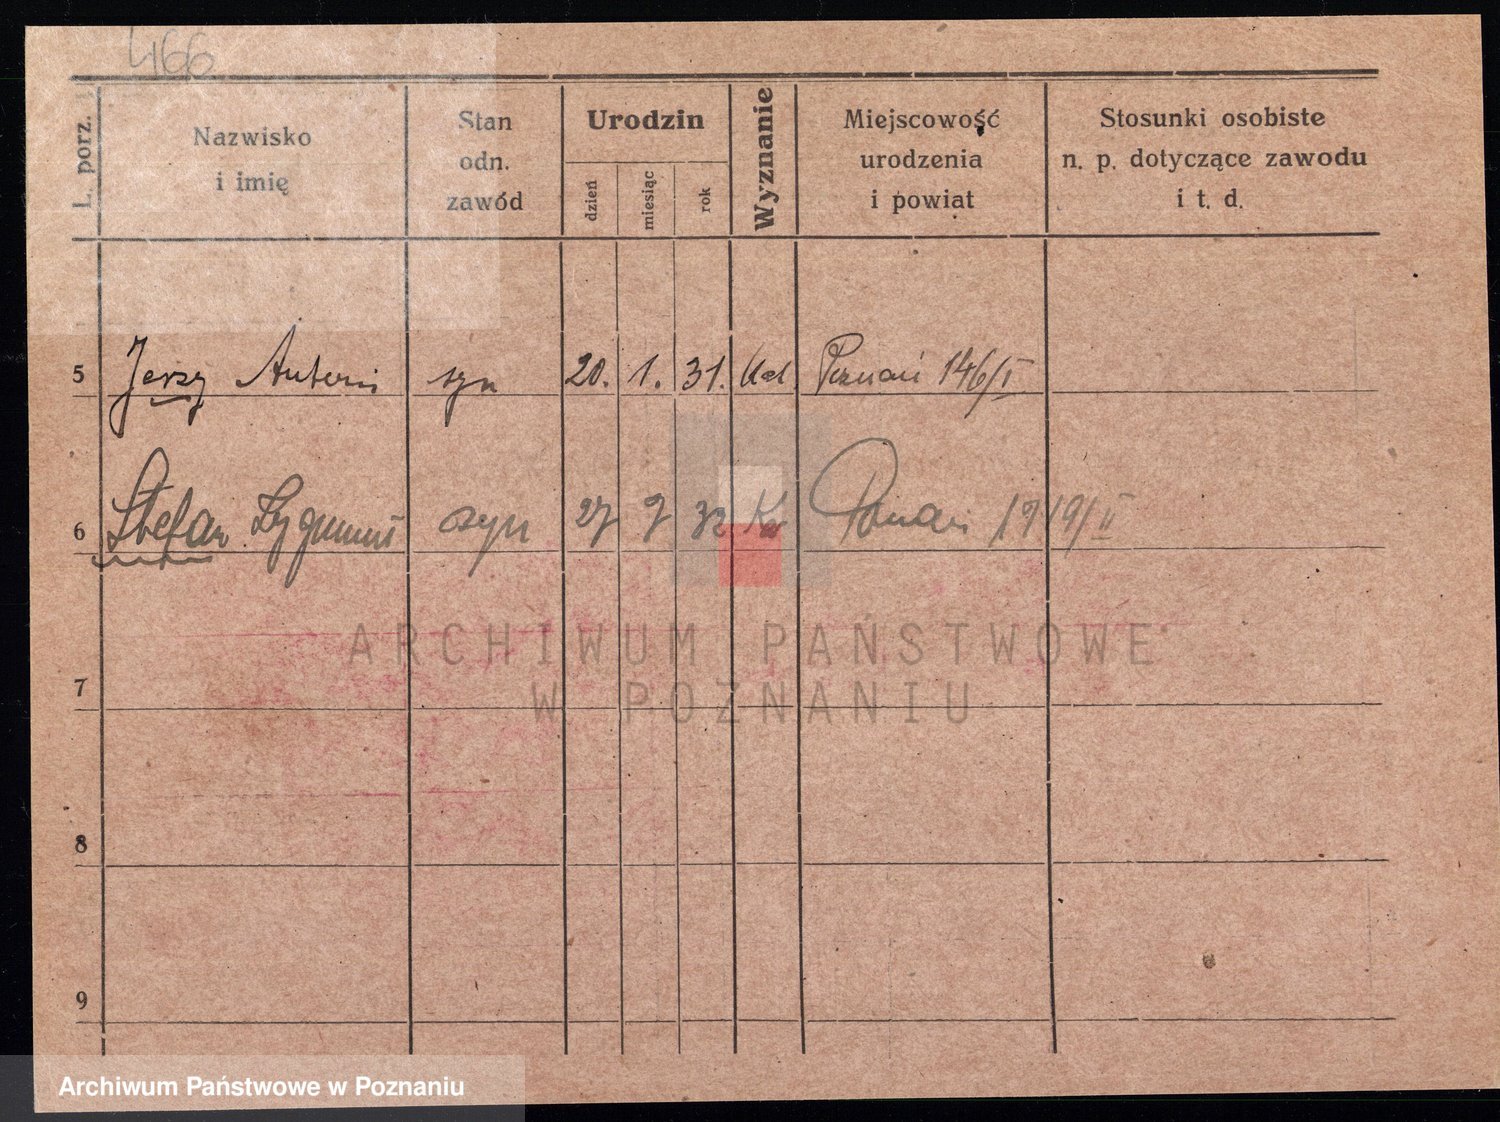 466
L. porz.
Nazwisko
i imię
Stan
odn.
zawód
Urodzin
dzień
miesiąc
rok
Wyznanie
Miejscowość
urodzenia
i powiat
Stosunki osobiste
n. p. dotyczące zawodu
i t. d.
5 Jerzy Antoni syn 20. 1. 31. Poznań 146/I
6 Stefan Zygmunt syn 27 32 Poznań 1919/II
ARCHIWUM PAŃSTWOWE
W POZNANIU
7
8
9
Archiwum Państwowe w Poznaniu